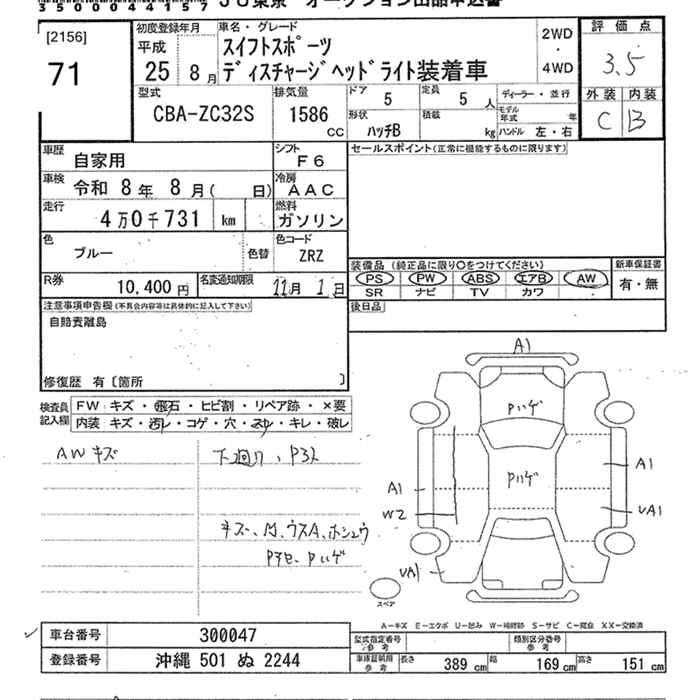 35000444157
JU東京 オークション出品申込書
[2156]
71
初度登録年月
平成
25 8月
車名・グレード
スイフトスポーツ
ディスチャージヘッドライト装着車
2WD
・
4WD
評価点
3.5
外装 内装
C B
型式
CBA-ZC32S
排気量
1586
CC
ドア
5
定員
5人
形状
ハッチB
積載
kg
ディーラー・並行
モデル年式 年
ハンドル 左・右
車歴
自家用
シフト
F6
セールスポイント(正常に機能するものに限ります)
車検
令和 8年 8月( 日)
冷房
AAC
走行
4万0千731 km
燃料
ガソリン
色
ブルー
色替
色コード
ZRZ
装備品 (純正品に限り○をつけてください)
PS PW ABS エアB AW
SR ナビ TV カワ
新車保証書
有・無
R券
10,400円
名変通知期限
11月 1日
後日品
注意事項申告欄(不具合内容等は具体的に記入して下さい)
自賠責離島
修復歴 有〔箇所 〕
検査員記入欄
FW:キズ・飛石・ヒビ割・リペア跡・×要
内装:キズ・汚レ・コゲ・穴・スレ・キレ・破レ
AWキズ
下廻り、
A1
Pハゲ
Pハゲ
A1
A1
W2
UA1
UA1
スペア
A-キズ E-エクボ U-凹み W-補修跡 S-サビ C-腐食 XX-交換済
車台番号
300047
登録番号
沖縄 501 ぬ 2244
型式指定番号
参考
類別区分番号
参考
車庫証明用
参考
長さ 389 cm
幅 169 cm
高さ 151 cm